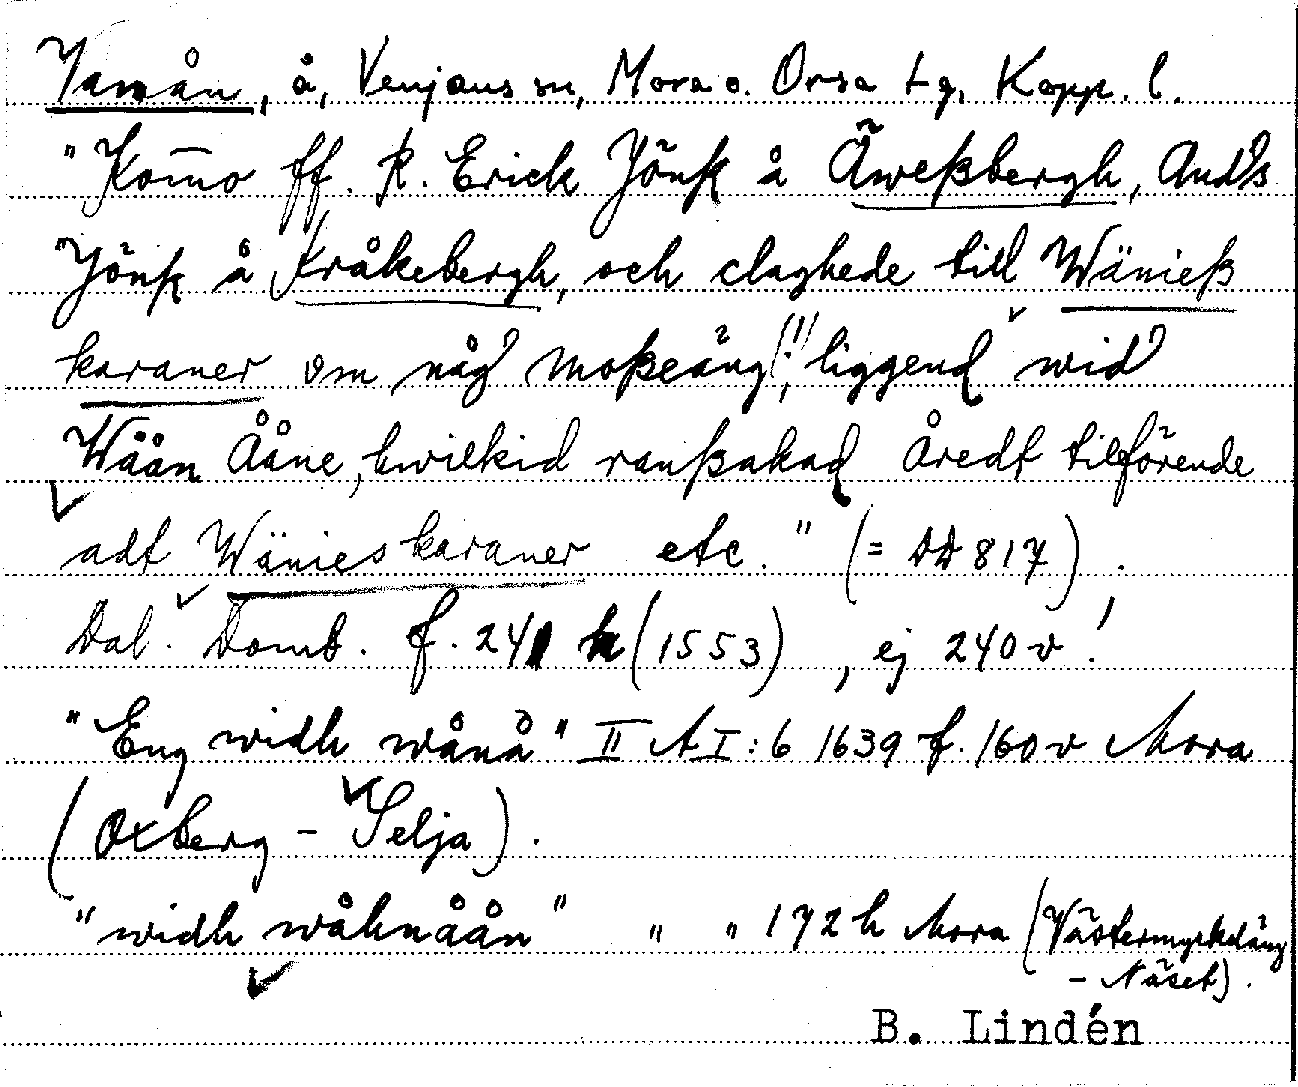 Vanån, å, Venjans sn, Mora o. Orsa tg, Kopp. l.
"Kom̅o ff. K. Erick Jönß å Äweßbergh, Anders
Jönß å Kråkebergh, och claghede till Wänieß
karaner om någ moßeäng(!), liggend wid
Wåån Ååne, hwilkid ranßakad åredt tilförende
adt Wänieskaraner etc." (= DD 817).
Dal. Domb. f. 241 h (1553), ej 240 v!
"Eng widh wånå" II A I:6 1639 f. 160 v Mora
(Oxberg - Selja).
"widh wåhnåån" " " 172 h Mora (Västermyckeläng
- Näset).
B. Lindén